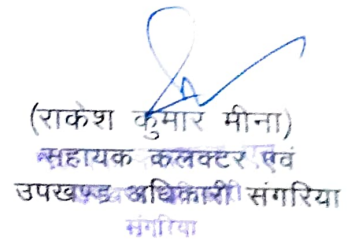 (राकेश कुमार मीना)
सहायक कलक्टर एवं
उपखण्ड अधिकारी संगरिया
संगरिया